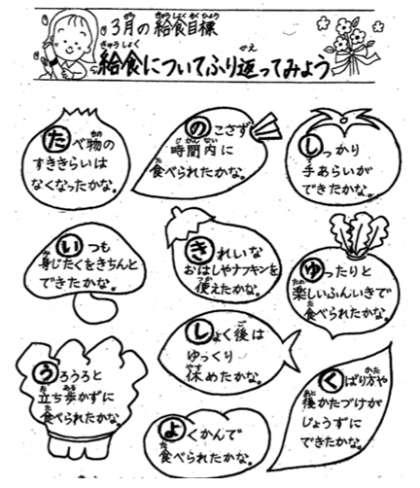 3月の給食目標
給食についてふり返ってみよう
たべ物の
すききらいは
なくなったかな。
のこさず
時間内に
食べられたかな。
しっかり
手あらいが
できたかな。
いつも
身じたくをきちんと
できたかな。
きれいな
おはしやナフキンを
使えたかな。
ゆったりと
楽しいふんいきで
食べられたかな。
うろうろと
立ち歩かずに
食べられたかな。
しょく後は
ゆっくり
休めたかな。
よくかんで
食べられたかな。
くばり方や
後かたづけが
じょうずに
できたかな。